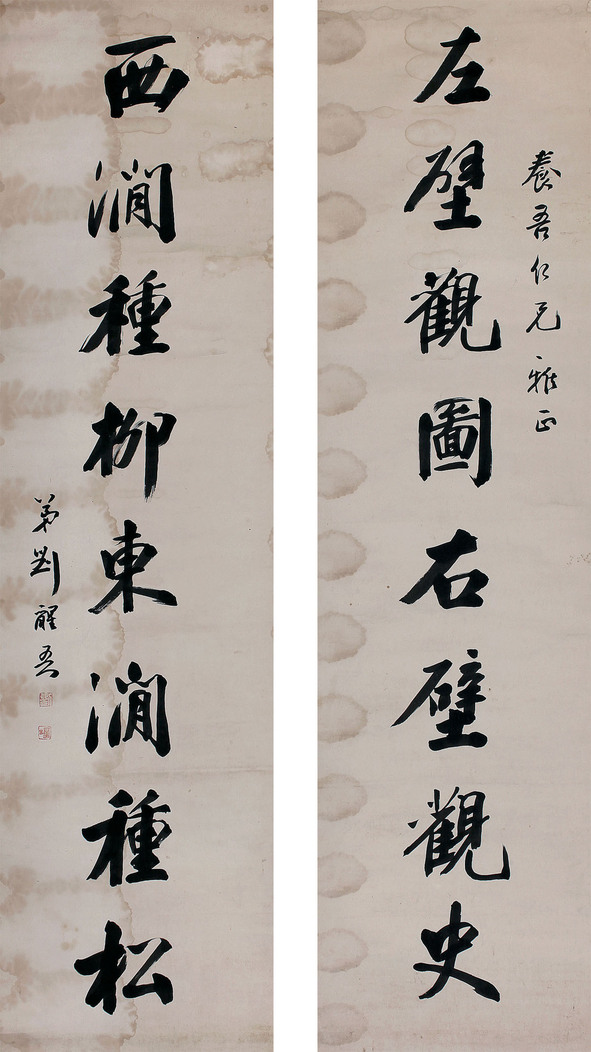 養吾仁兄雅正
左壁觀圖右壁觀史
西澗種柳東澗種松
弟劉醒吾